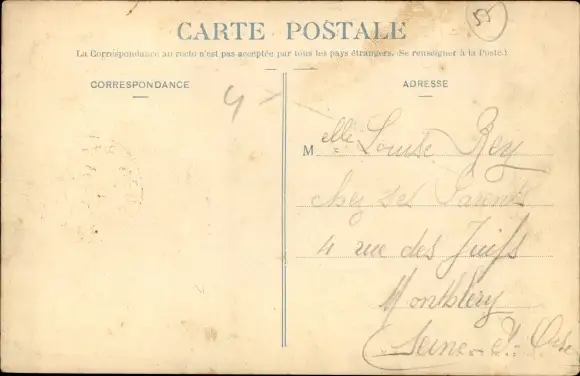 55
CARTE POSTALE
La Correspondance au recto n'est pas acceptée par tous les pays étrangers. (Se renseigner à la Poste.)
CORRESPONDANCE
4
ADRESSE
Melle Louise Rey
chez ses Parents
4 rue des Juifs
Montlhéry
(Seine-et-Oise